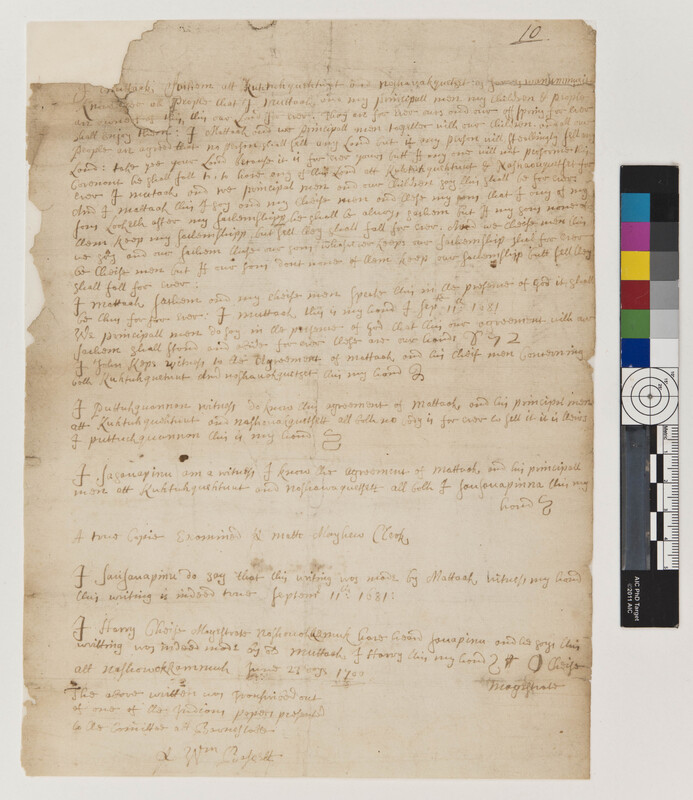 10
I muttaak, Sachem att Kuhtuhquehtuut and Nashauahquetget
Know yee all People that I Muttaak, and my principall men my Children & people
are owners of this, this our Land for ever. They are for ever ours and our offspring for ever
shall enjoy them: I Mattaak and we principall men together with our Children and all our
People are agreed that no person shall sell any Land but if any person will sell
Land: take yee your Land because it is for ever yours butt if any one will not performe this
Covenant he shall fall to have any of this Land att Kuhtuhquehtuut & Nashauaquetset for
ever I mutaak, and we principal men and our Children say this shall be for ever:
And I mattaak this I say and my Cheise men and these my sons that if any of my
sons after my sachemshipp he shall be always sachem but if my sons none of
them keep my sachemshipp, but fall they shall fall for ever. And we cheise men this
we say and our sachem these our sons keeps our sachemship shall for ever
be Cheise men but if our sons dont none of them keep our sachemship butt fall they
shall fall for ever:
I Mattaak Sachem and my cheise men speake this in the presence of God it shall
be thus for for ever: I muttaak, this is my hand Sept 11th 1681
We principall men do say in the presence of God that this our agreement with our
Sachem shall stand and abide for ever these are our hands
I John Keps witness to the Agreement of mattaak, and his cheise men Concerning
both Kuhtuhquetuut And nashauohquetset this my hand
I Puttuhquannon witness do know this agreement of Mattaak, and his principal men
att Kuhtuhquehtuut and Nashauaquetsett all both no body is for ever to sell it: it is theirs
I puttuhquannon this is my hand
I Sasauapinu am a witness I know the agreement of mattaak, and his principall
men att Kuhtuhquehtuut and Nashauaquetsett all both I Sausauapinna this my
hand
A true Copie Examined & matt Mayhew Clerk
I Sausauapinu do say that this writing was made by Mattaak, Witness my hand
this writing is indeed true September 11th 1681:
I Harry Cheise Magistrate Nashowohkamuk have heard sauapinu and he says this
writting was indeed made by Muttaak, I Harry this my hand H Cheise
magistrate
att Nashowohkamuk June 1700
The above written was transcribed out
of one of the Indians papers presented
to the Comittee att Barnstable
& Wm Basset